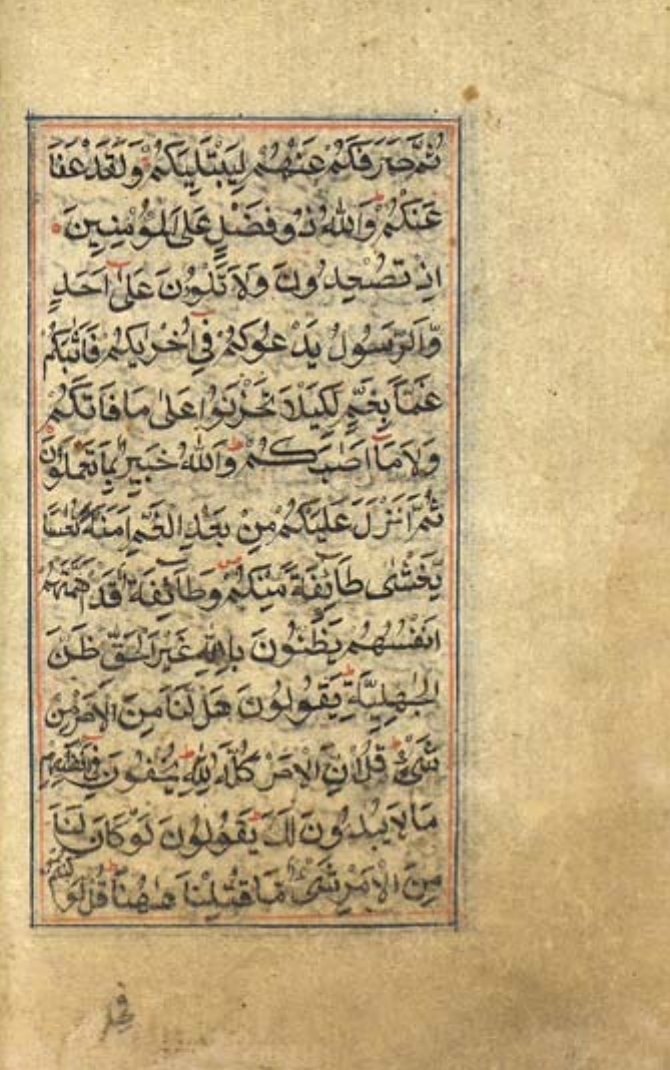 ثُمَّ صَرَفَكُمْ عَنْهُمْ لِيَبْتَلِيَكُمْ وَلَقَدْ عَفَا
عَنْكُمْ وَاللّٰهُ ذُو فَضْلٍ عَلَى الْمُؤْمِنِينَ
اِذْ تُصْعِدُونَ وَلَا تَلْوُنَ عَلٰى اَحَدٍ
وَّالرَّسُولُ يَدْعُوكُمْ فِي اُخْرٰىكُمْ فَاَثَابَكُمْ
غَمًّا بِغَمٍّ لِكَيْلَا تَحْزَنُوا عَلٰى مَا فَاتَكُمْ
وَلَا مَا اَصَابَكُمْ وَاللّٰهُ خَبِيرٌ بِمَا تَعْمَلُونَ
ثُمَّ اَنْزَلَ عَلَيْكُمْ مِنْ بَعْدِ الْغَمِّ اَمَنَةً نُعَاسًا
يَّغْشٰى طَائِفَةً مِّنْكُمْ وَطَائِفَةٌ قَدْ اَهَمَّتْهُمْ
اَنْفُسُهُمْ يَظُنُّونَ بِاللّٰهِ غَيْرَ الْحَقِّ ظَنَّ
الْجٰهِلِيَّةِ يَقُولُونَ هَلْ لَنَا مِنَ الْاَمْرِ مِنْ
شَيْءٍ قُلْ اِنَّ الْاَمْرَ كُلَّهُ لِلّٰهِ يُخْفُونَ فِي اَنْفُسِهِمْ
مَا لَا يُبْدُونَ لَكَ يَقُولُونَ لَوْ كَانَ لَنَا
مِنَ الْاَمْرِ شَيْءٌ مَّا قُتِلْنَا هٰهُنَا قُلْ لَوْ كُنْتُمْ